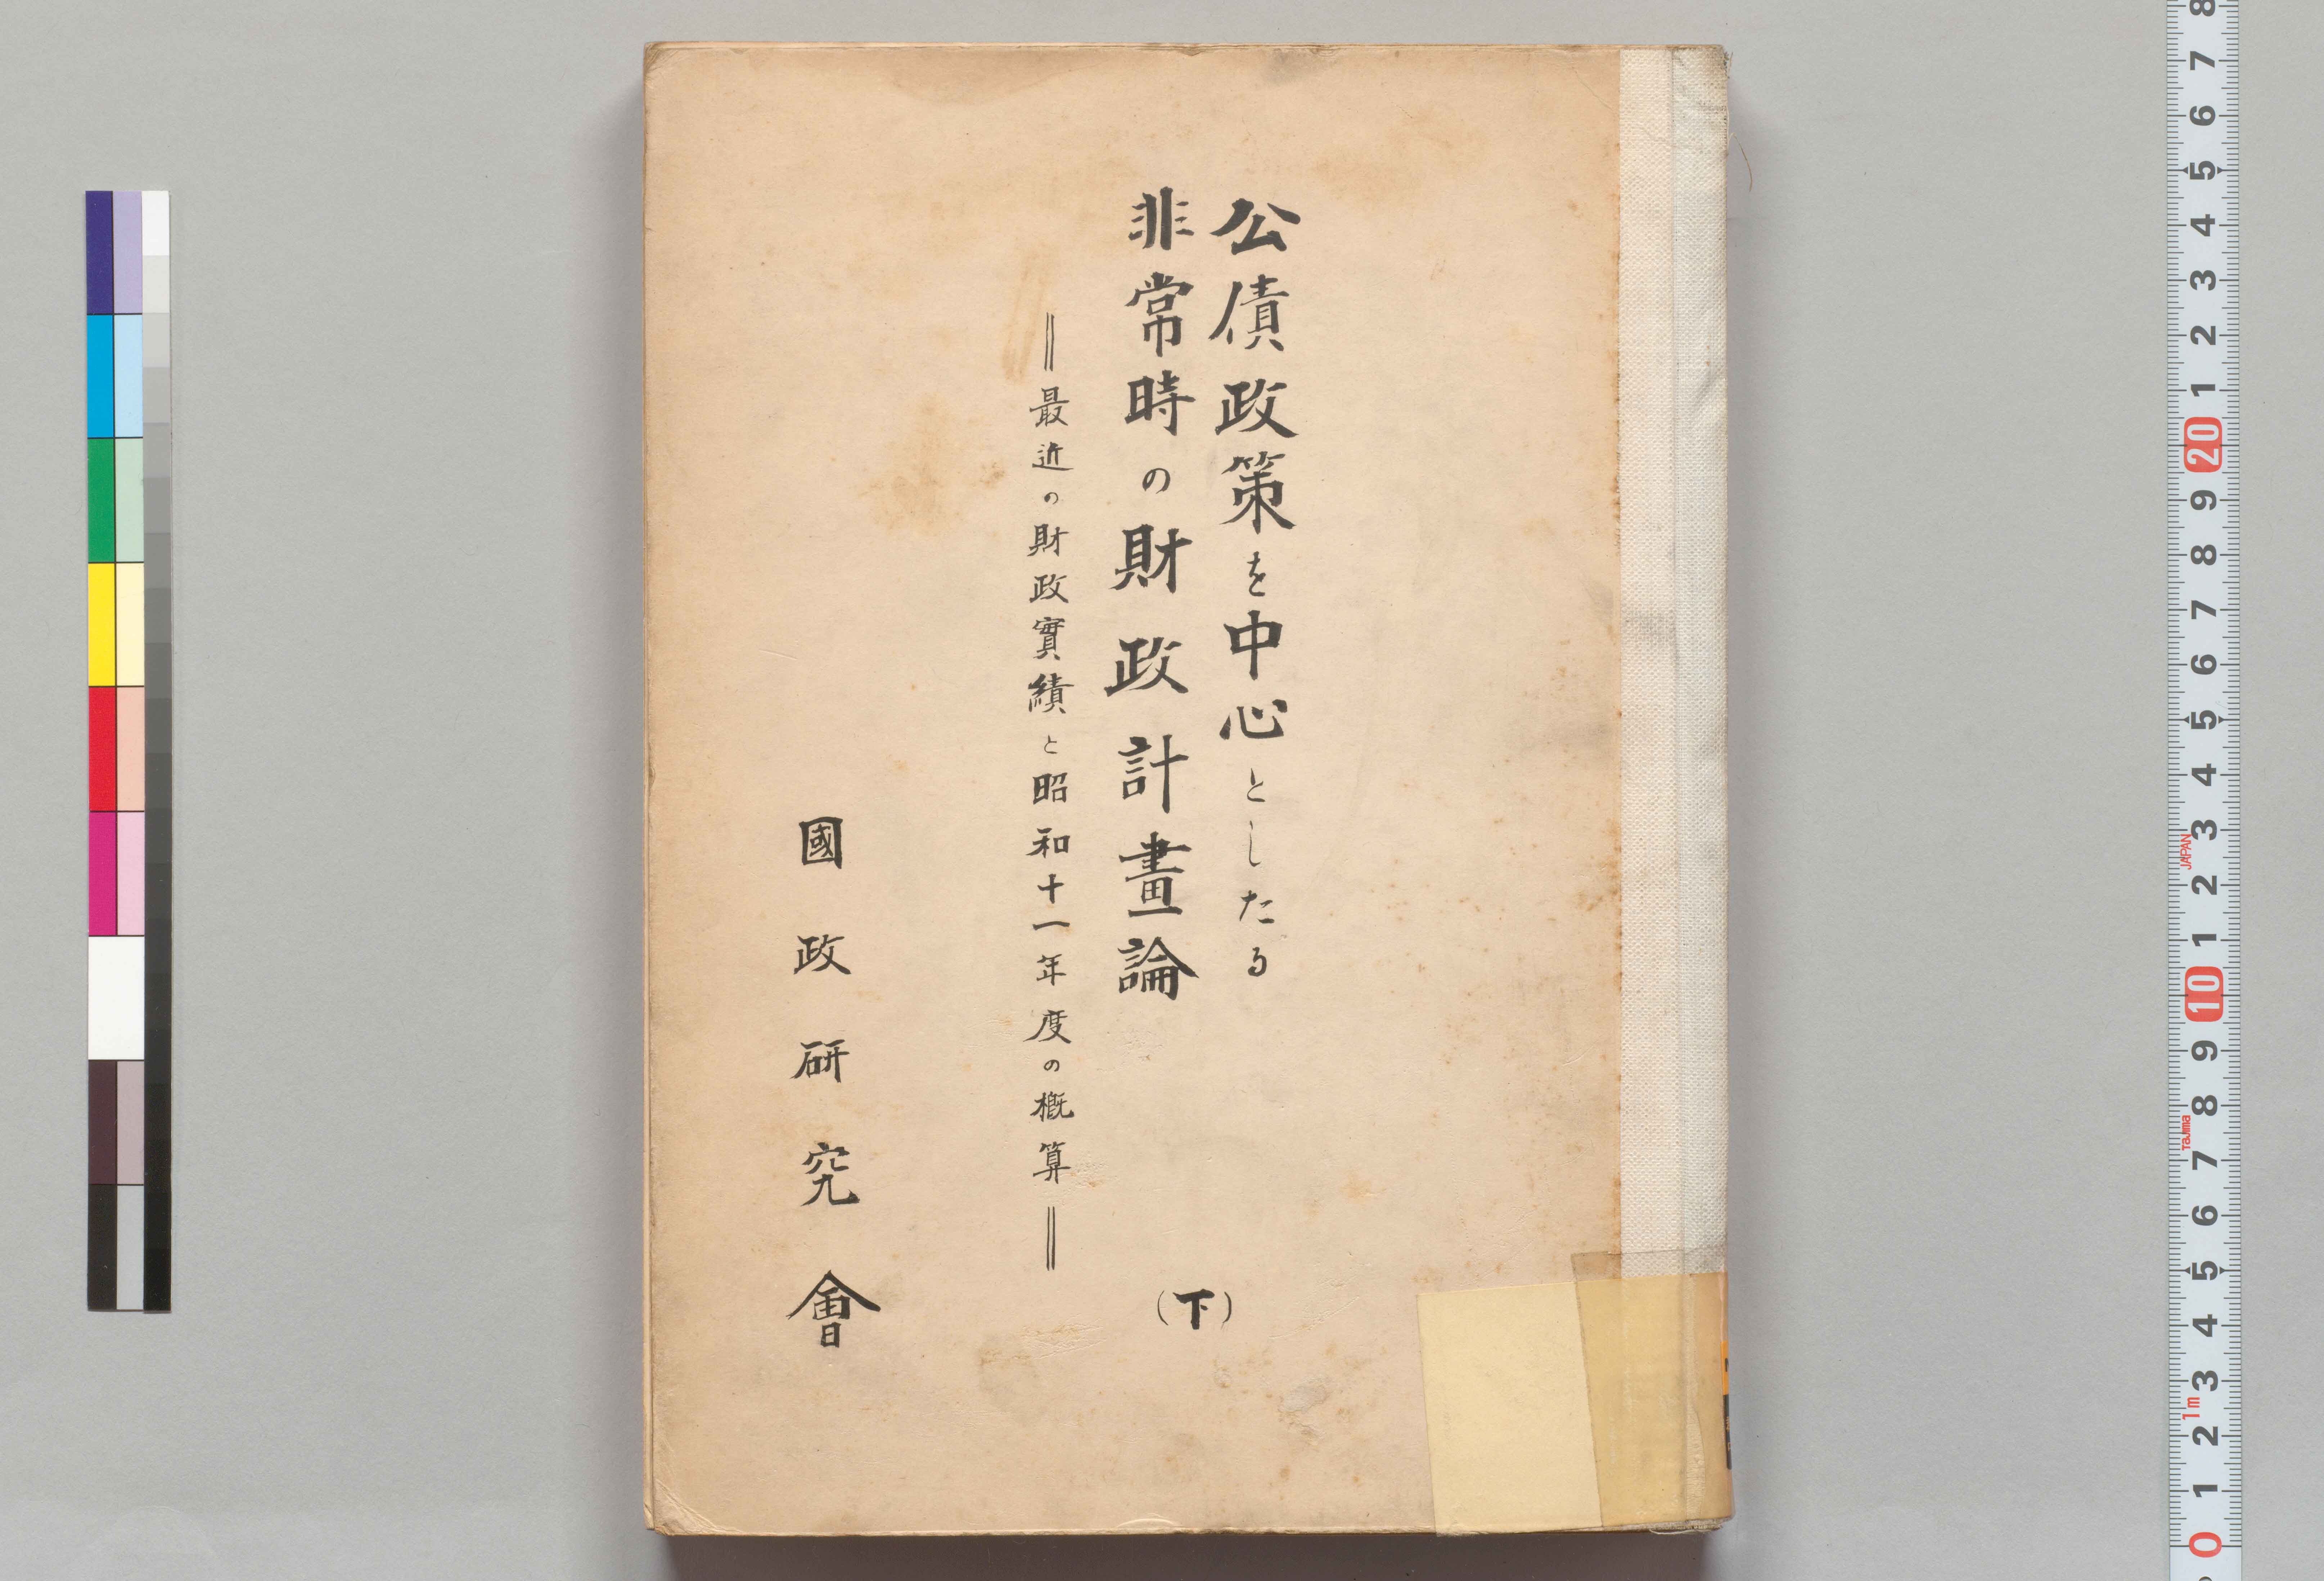 公債政策を中心としたる
非常時の財政計畫論
(下)
＝最近の財政實績と昭和十一年度の概算＝
國政研究會
8
7
6
5
4
3
2
1
20
9
8
7
6
5
4
3
2
1
10
9
8
7
6
5
4
3
2
1
0
JAPAN
Tajima
1m